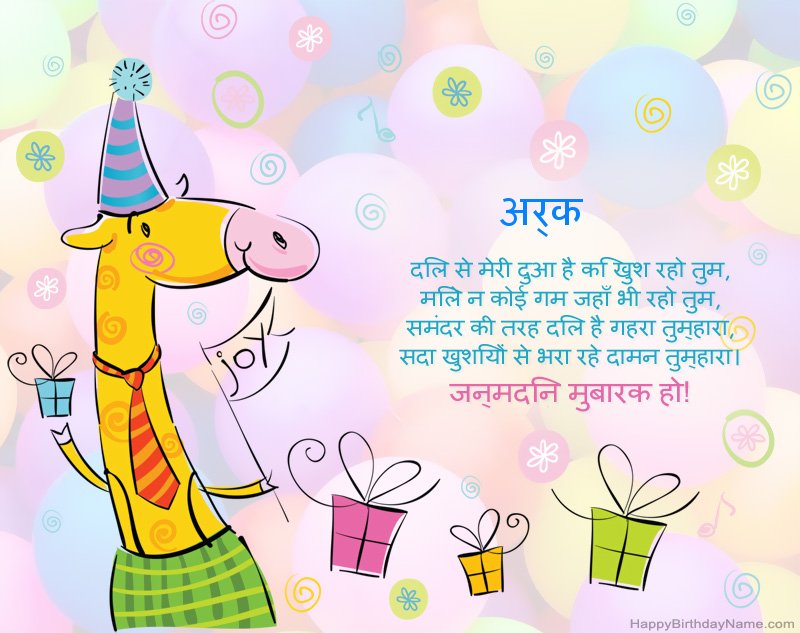 अर्क
दिल से मेरी दुआ है कि खुश रहो तुम,
मिले न कोई गम जहाँ भी रहो तुम,
समंदर की तरह दिल है गहरा तुम्हारा,
सदा खुशियों से भरा रहे दामन तुम्हारा।
जन्मदिन मुबारक हो!
joy
HappyBirthdayName.com